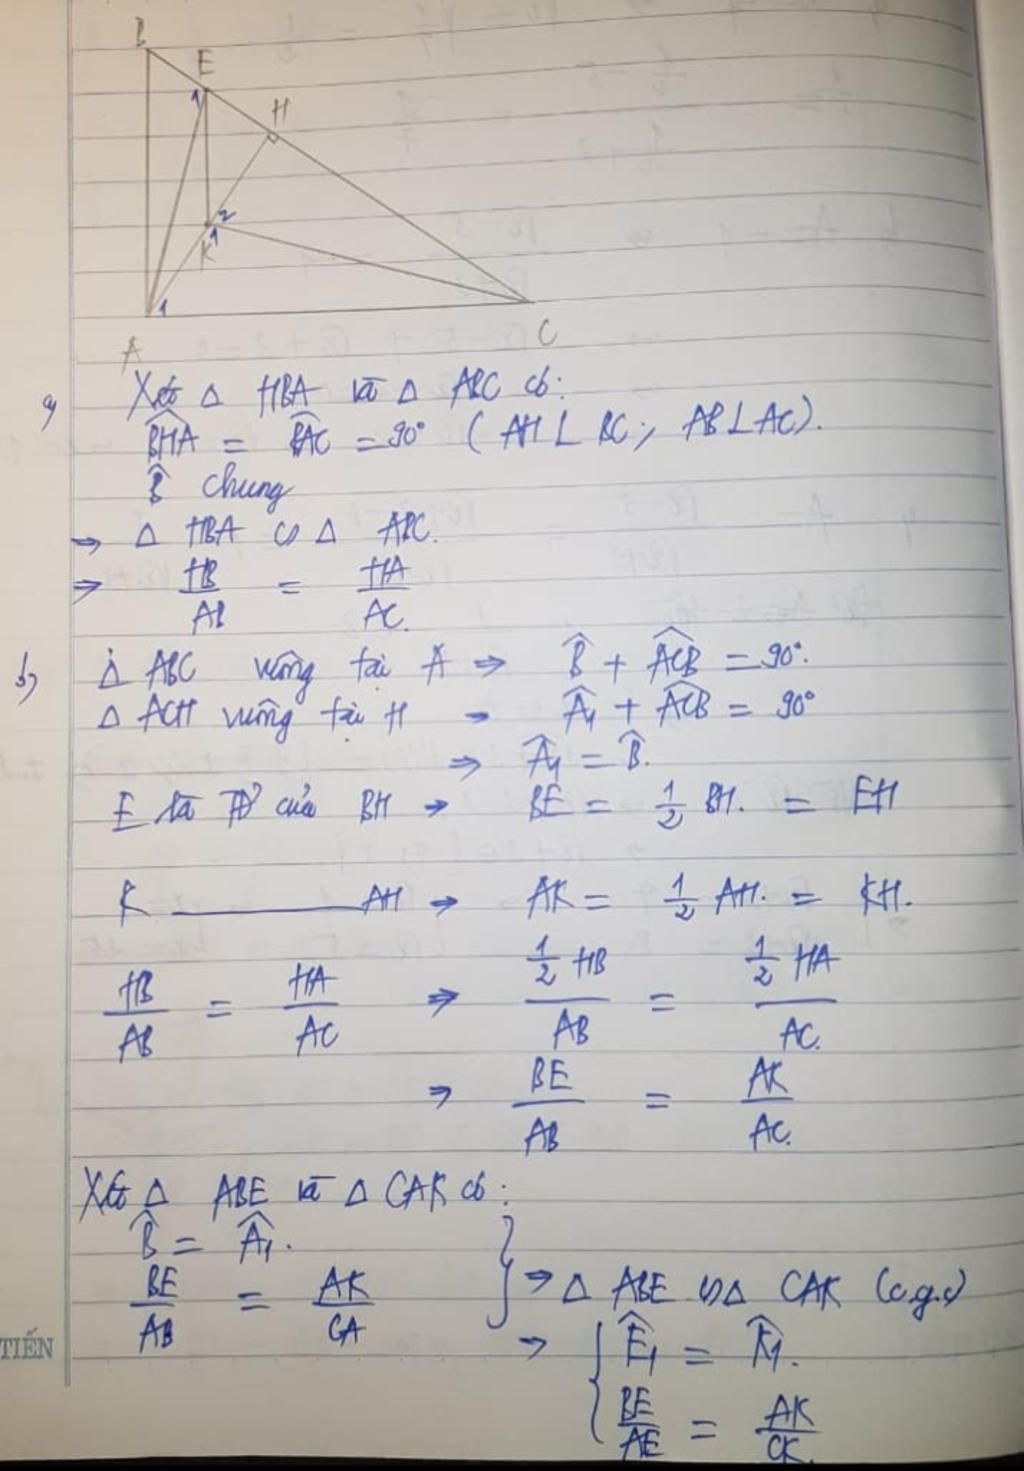 B
E
1
H
2
1
K
1
A
C
a,
Xét Δ HBA và Δ ABC có:
B̂HA = B̂AC = 90° ( AH ⊥ BC ; AB ⊥ AC ).
B̂ chung
⇒ Δ HBA ∽ Δ ABC.
⇒ HB/AB = HA/AC.
b, Δ ABC vuông tại A ⇒ B̂ + ÂCB = 90°.
Δ ACH vuông tại H → Â1 + ÂCB = 90°
⇒ Â1 = B̂.
E là TĐ của BH → BE = 1/2 BH. = EH
K ——— AH → AK = 1/2 AH. = KH.
HB/AB = HA/AC ⇒ 1/2 HB/AB = 1/2 HA/AC.
⇒ BE/AB = AK/AC.
Xét Δ ABE và Δ CAK có :
B̂ = Â1.
BE/AB = AK/CA } ⇒ Δ ABE ∽ Δ CAK (c.g.c)
TIẾN
⇒ { Ê1 = K̂1.
BE/AE = AK/CK.